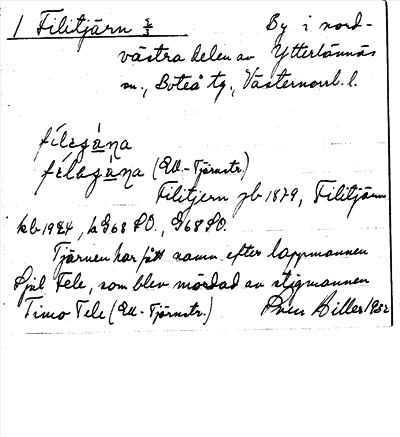 1 Filitjärn 2/3 By i nord-
västra delen av Ytterlännäs
sn., Boteå tg., Västernorrl. l.
filegȧna
fellegȧna (Ell.-Tjärnstr.)
Filitjern jb 1879, Filitjärn
kb 1924, h G68 SO., G68 SO.
Tjärnen har fått namn efter lappmannen
Fjäl Fele, som blev mördad av stigmannen
Timo Tele (Ell.-Tjärnstr.) Sven Hiller 1932